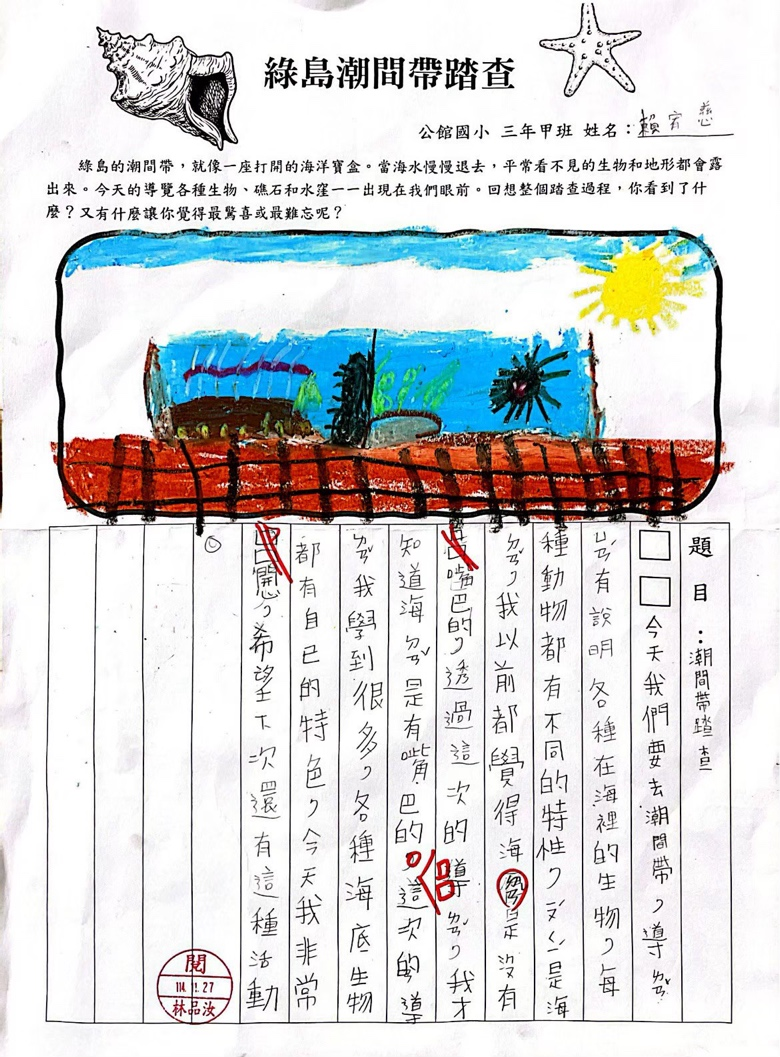 綠島潮間帶踏查
公館國小 三年甲班 姓名：賴宥慈
綠島的潮間帶，就像一座打開的海洋寶盒。當海水慢慢退去，平常看不見的生物和地形都會露
出來。今天的導覽各種生物、礁石和水窪一一出現在我們眼前。回想整個踏查過程，你看到了什
麼？又有什麼讓你覺得最驚喜或最難忘呢？
題目：潮間帶踏查
□□今天我們要去潮間帶，導ㄌㄢˇ
有說明各種在海裡的生物，每
種動物都有不同的特性，是海
ㄉㄢˇ，我以前都覺得海是沒有
嘴巴的，透過這次的導ㄌㄢˇ，我才
知道海ㄉㄢˇ是有嘴巴的。這次的導
ㄌㄢˇ我學到很多，各種海底生物
都有自己的特色，今天我非常
開心，希望下次還有這種活動
。
閱
114.11.27
林品汝